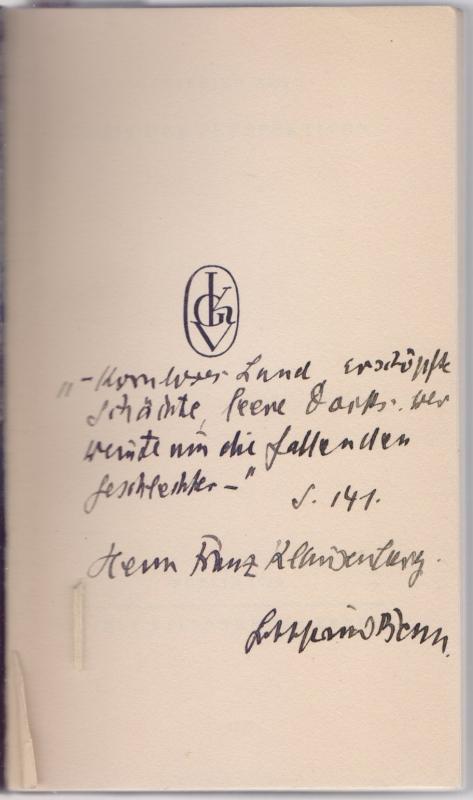 „– Kornloses Land, erschöpfte
Schächte, leere Docks. wer
weinte um die fallenden
Geschlechter –"
S. 141.
Herrn Franz
Gottfried Benn.